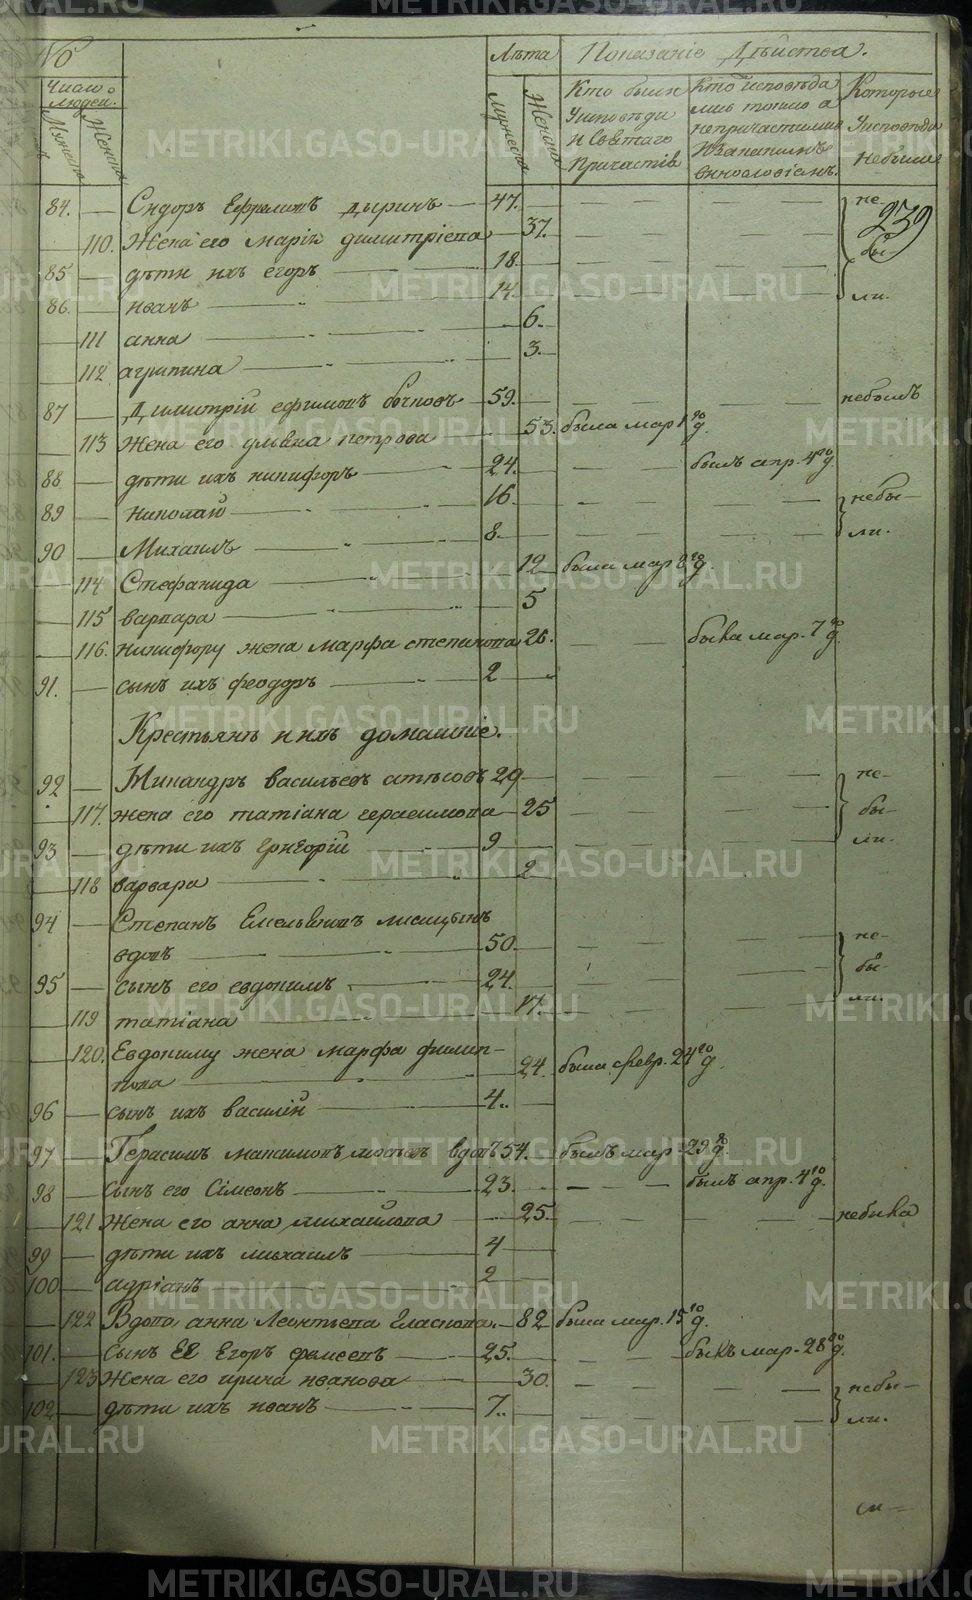 № Лѣта Показаніе Дѣйства.
Число людей. Мужеска Женска Мужеска Женска Кто были у исповѣди и Святаго Причастія Кто исповѣдались токмо а не причастились и за какимъ винословіемъ. Которые у исповѣди небыли
239
84. Сидоръ Ефремовъ дыринъ 47. не
110. Жена его марія димитріева 37. бы-
85 дѣти ихъ егоръ 18.
86. иванъ 14. ли.
111 анна 6.
112 агрипина 3.
87 Димитрій ефимовъ 59. небылъ
113 жена его петрова 53. была мар 1го д.
88 дѣти ихъ никифоръ 24. былъ апр. 4го д.
89 николай 16 небы-
90 Михаилъ 8. ли.
114 Стефанида 12 была мар 8го д.
115 варвара 5
116. никифору жена марфа степанова 26. была мар. 7го д.
91. сынъ ихъ феодоръ 2
Крестьянъ и ихъ домашніе.
92 Никандръ васильевъ 29 не-
117. жена его татіана герасимова 25 бы-
93 дѣти ихъ григорій 9 ли.
118 варвара 2
94 Степанъ Емельяновъ лисицынъ
вдовъ 50. не-
95 сынъ его евдокимъ 24. бы-
119 татіана 17. ли.
120. Евдокиму жена марфа филип-
пова 24. была февр. 24го д.
96 сынъ ихъ василій 4.
97 Герасимъ максимовъ вдовъ 54. былъ мар 29го д.
98 сынъ его Симеонъ 23. былъ апр. 4го д.
121 жена его анна михайлова 25. небыла
99 дѣти ихъ михаилъ 4
100 адріанъ 2
122 Вдова анна Леонтьева 82 была мар. 15го д.
101. сынъ Ея Егоръ 25. былъ мар. 28го д.
123 жена его ирина иванова 30.
102 дѣти ихъ иванъ 7. небы-
ли.
METRIKI.GASO-URAL.RU